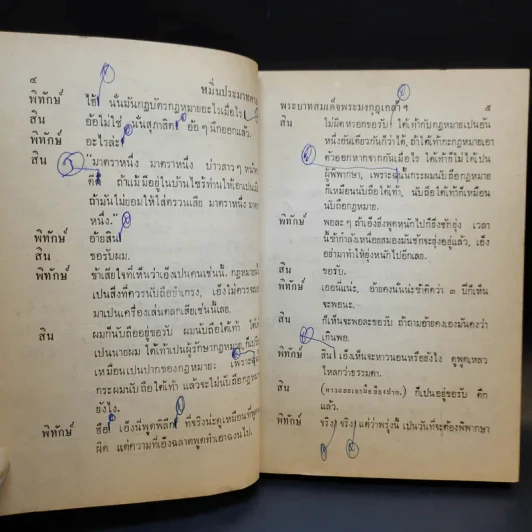 ๔
หมิ่นประมาทศาล
พิทักษ์ ไฮ้ นั่นมันกฎบัตรกฎหมายอะไรเมื่อไร
สิน อ้อไม่ใช่ นั่นสุภาสิต อ้อ ๆ นึกออกแล้ว.
พิทักษ์ อะไรล่ะ
สิน "มาตราหนึ่ง มาตราหนึ่ง บ่าวสาวๆ
ดี ถ้าแม้มีอยู่ในบ้านไซร้ท่านให้เอาเปนเมีย
ถ้ามันไม่ยอมให้ใส่ตรวนเสีย มาตราหนึ่ง
หนึ่ง."
พิทักษ์ อ้ายสิน
สิน ขอรับผม.
พิทักษ์ ข้าเสียใจที่เห็นว่าเอ็งเปนคนเช่นนี้. กฎหมาย
เปนสิ่งที่ควรนับถือยำเกรง, เอ็งไม่ควรจะ
มาเปนเครื่องเล่นตลกเสียเช่นนี้เลย.
สิน ผมก็นับถืออยู่ขอรับ ผมนับถือใต้เท้า
เปนนายผม ใต้เท้าเปนผู้รักษากฎหมาย, ก็
เหมือนเปนปากของกฎหมาย: เพราะ
กระผมนับถือใต้เท้า แล้วจะไม่นับถือกฎหมาย
ยังไง.
พิทักษ์ ฮือ เอ็งนี่พูดพิลึก ที่จริงน่ะดูเหมือนที่พูด
ผิด แต่ความที่เอ็งฉลาดพูดทำเอาฉงนไป
พระบาทสมเด็จพระมงกุฎเกล้า ฯ
๕
สิน ไม่ผิดหรอกขอรับ! ใต้เท้ากับกฎหมายเปนอัน
หนึ่งอันเดียวกันก็ว่าได้, ถ้าใต้เท้ากะกฎหมายเอา
ตัวออกหากจากกันเมื่อไร ใต้เท้าก็ไม่ได้เปน
ผู้พิพากษา, เพราะฉะนั้นกระผมนับถือกฎหมาย
ก็เหมือนนับถือใต้เท้า, นับถือใต้เท้าก็เหมือน
นับถือกฎหมาย.
พิทักษ์ พอละๆ ถ้าเอ็งยิ่งพูดหนักไปก็ยิ่งชักยุ่ง, เวลา
นี้ข้ากำลังเหนื่อยสมองมันชักจะยุ่งอยู่แล้ว, เอ็ง
อย่ามาทำให้ยุ่งหนักไปอีกเลย.
สิน ขอรับ.
พิทักษ์ เออนี่แน่ะ, อ้ายคงนั้นน่ะข้าคิดว่า ๓ ปีก็เห็น
จะพอนะ.
สิน ก็เห็นจะพอละขอรับ ถ้าถามอ้ายคงเองมันคงว่า
เกินพอ.
พิทักษ์ สิน! เอ็งเห็นจะหาวนอนหรือยังไง ดูพูดเหลว
ไหลกว่าธรรมดา.
สิน (หาวและเอามือป้องปาก.) ก็เปนอยู่ขอรับ ดึก
แล้ว.
พิทักษ์ จริง จริง แต่ว่าพรุ่งนี้ เปนวันที่จะต้องพิพากษา